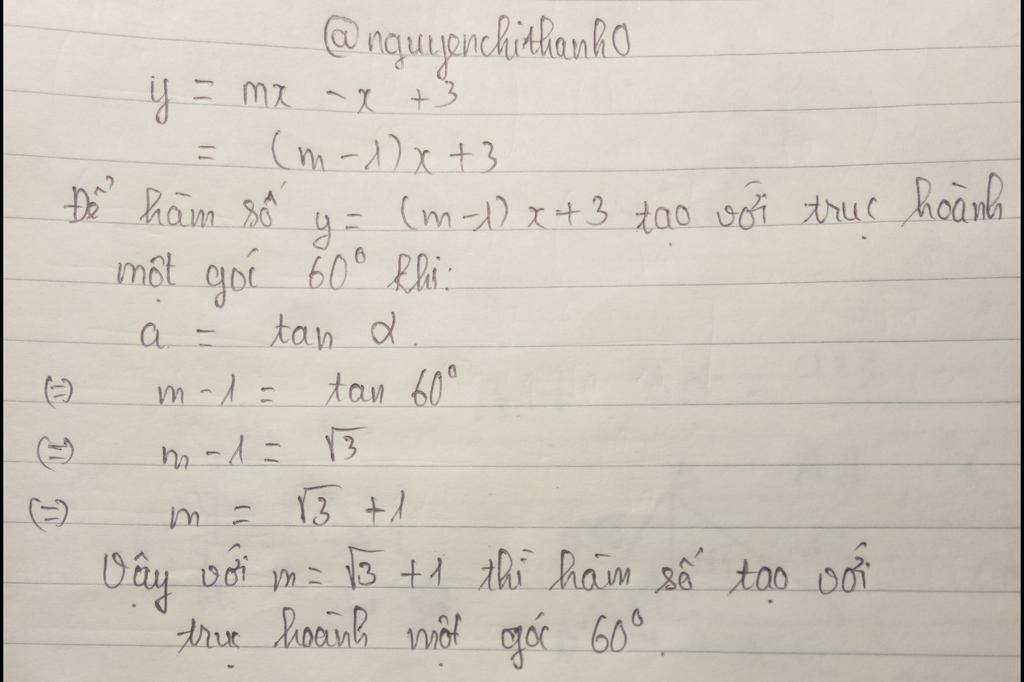 @nguyenchithanh0
y = mx - x + 3
= (m - 1)x + 3
Để hàm số y = (m-1) x + 3 tạo với trục hoành
một góc 60° khi:
a = tan α.
(=) m - 1 = tan 60°
(=) m - 1 = √3
(=) m = √3 + 1
Vậy với m = √3 + 1 thì hàm số tạo với
trục hoành một góc 60°.